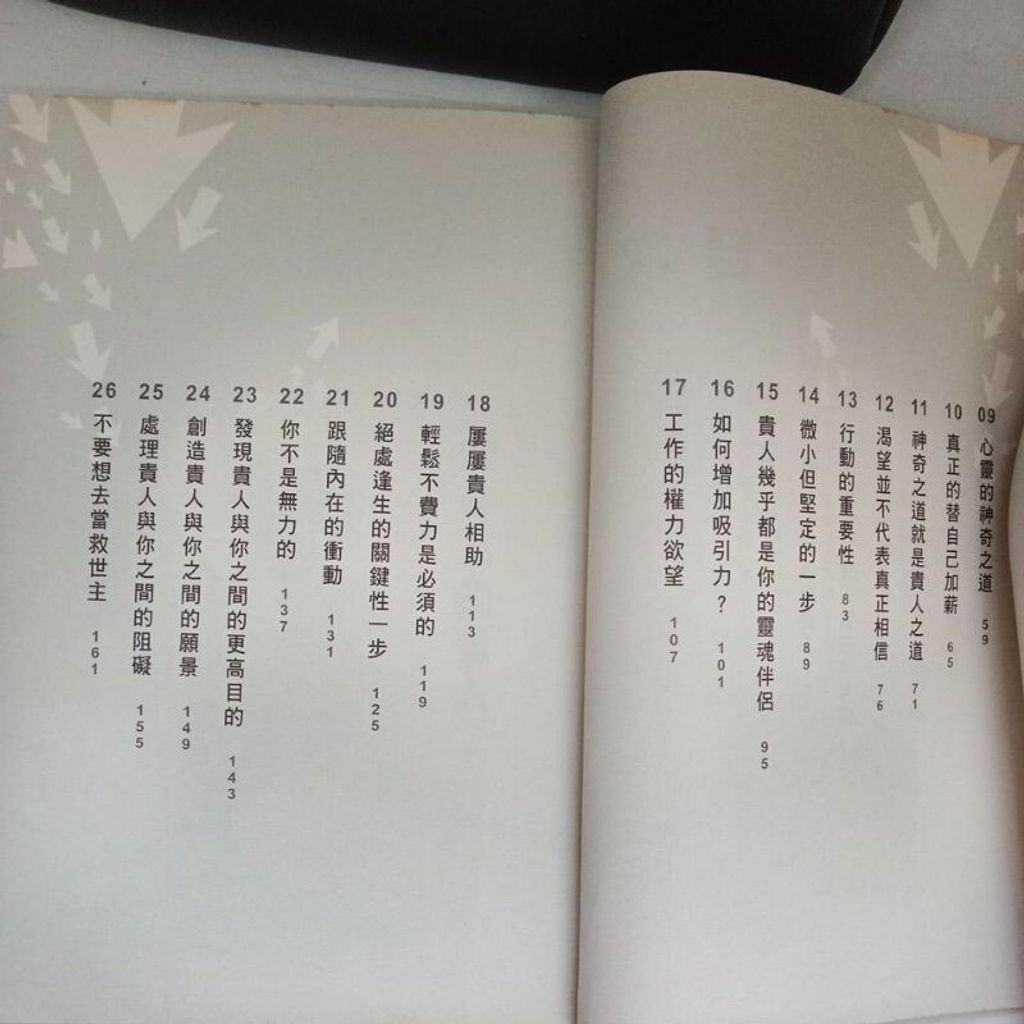 09 心靈的神奇之道 59
10 真正的替自己加薪 65
11 神奇之道就是貴人之道 71
12 渴望並不代表真正相信 76
13 行動的重要性 83
14 微小但堅定的一步 89
15 貴人幾乎都是你的靈魂伴侶 95
16 如何增加吸引力？ 101
17 工作的權力欲望 107
18 屢屢貴人相助 113
19 輕鬆不費力是必須的 119
20 絕處逢生的關鍵性一步 125
21 跟隨內在的衝動 131
22 你不是無力的 137
23 發現貴人與你之間的更高目的 143
24 創造貴人與你之間的願景 149
25 處理貴人與你之間的阻礙 155
26 不要想去當救世主 161